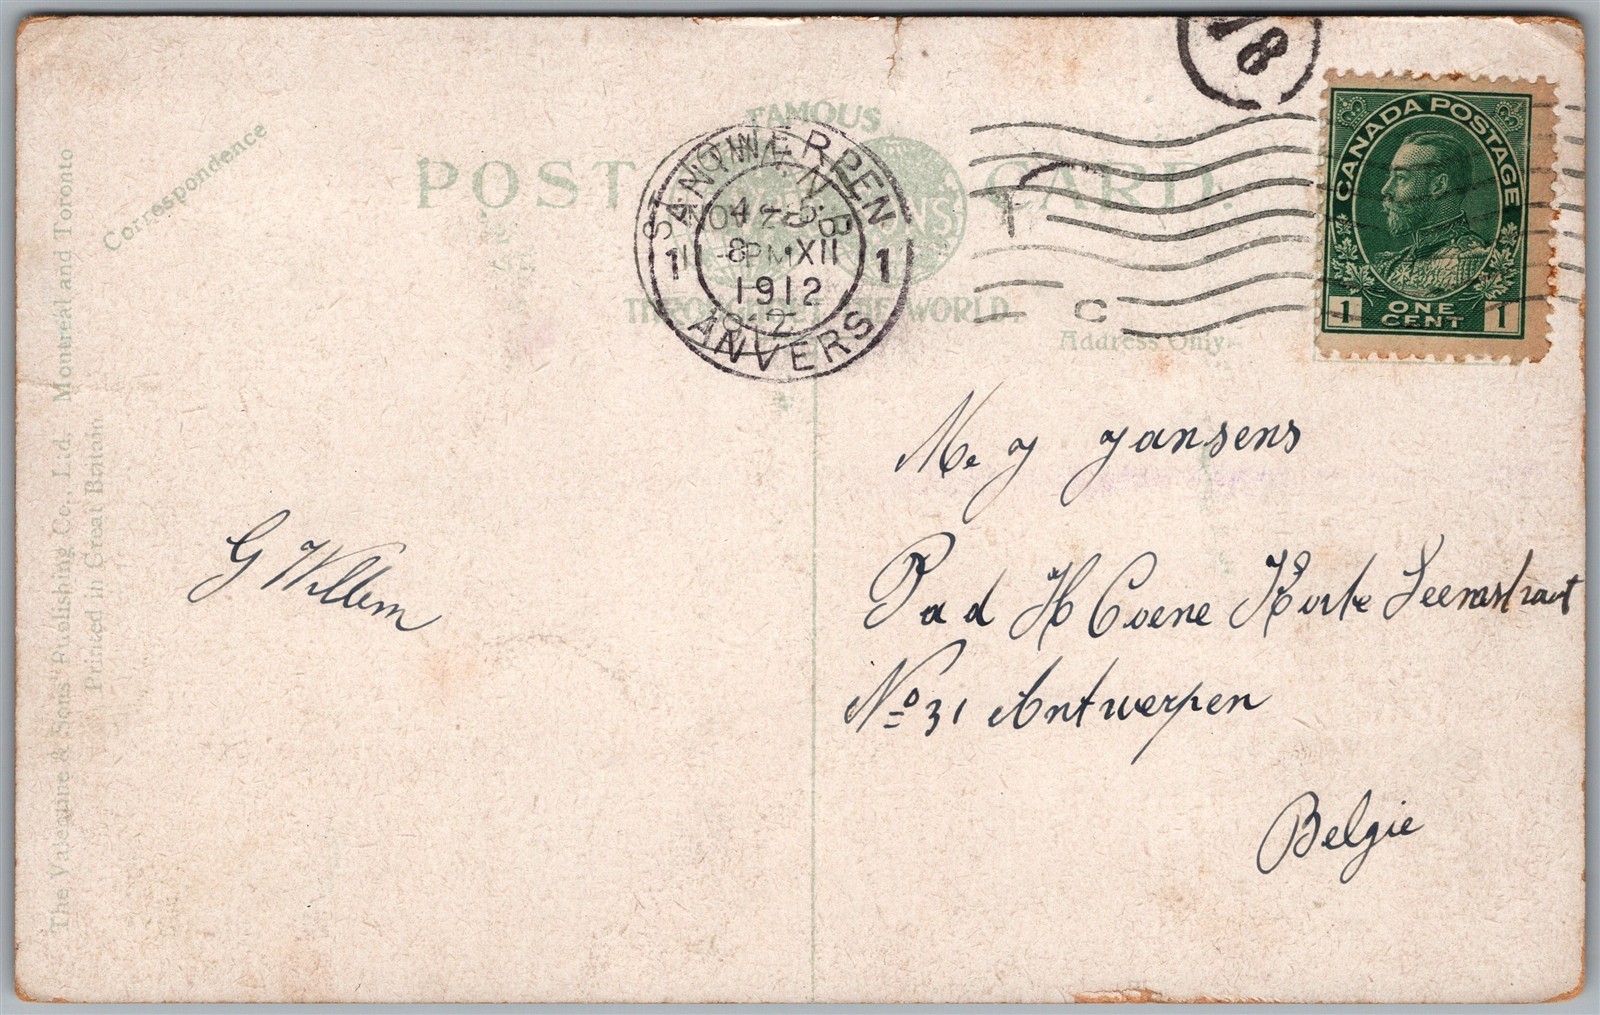 Correspondence
POST CARD.
FAMOUS
THROUGHOUT THE WORLD.
Address Only.
ANTWERPEN
ST. JOHN, N.B.
NOV 28
8 PM
1912
4-5
XII
1912
1 1
ANVERS
T
C
18
CANADA POSTAGE
1 ONE CENT 1
G Willem
M. J Jansens
Pad H Coene Korte Leemstraat
No 31 Antwerpen
Belgie
The Valentine & Sons' Publishing Co., Ltd. Montreal and Toronto
Printed in Great Britain.